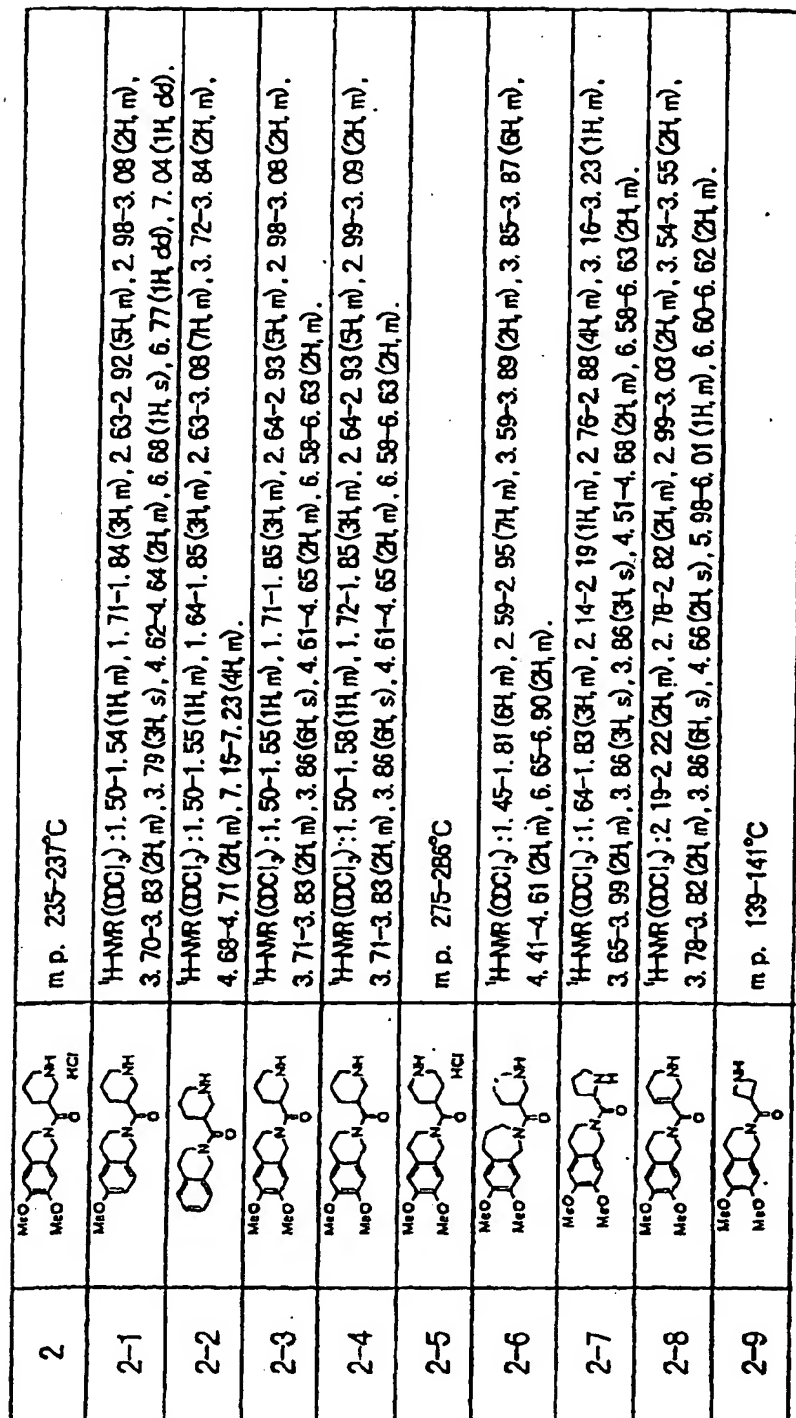 2
MeO
MeO
N
O
NH
HCl
m p. 235-237°C
2-1
MeO
N
O
NH
¹H-NMR (CDCl₃) :1. 50-1. 54 (1H, m), 1. 71-1. 84 (3H, m), 2. 63-2. 92 (5H, m), 2. 98-3. 08 (2H, m),
3. 70-3. 83 (2H, m), 3. 79 (3H, s), 4. 62-4. 64 (2H, m), 6. 68 (1H, s), 6. 77 (1H, dd), 7. 04 (1H, dd).
2-2
N
O
NH
¹H-NMR (CDCl₃) :1. 50-1. 55 (1H, m), 1. 64-1. 85 (3H, m), 2. 63-3. 08 (7H, m), 3. 72-3. 84 (2H, m),
4. 68-4. 71 (2H, m), 7. 15-7. 23 (4H, m).
2-3
MeO
MeO
N
O
NH
¹H-NMR (CDCl₃) :1. 50-1. 55 (1H, m), 1. 71-1. 85 (3H, m), 2. 64-2. 93 (5H, m), 2. 98-3. 08 (2H, m),
3. 71-3. 83 (2H, m), 3. 86 (6H, s), 4. 61-4. 65 (2H, m), 6. 58-6. 63 (2H, m).
2-4
MeO
MeO
N
O
NH
¹H-NMR (CDCl₃) :1. 50-1. 58 (1H, m), 1. 72-1. 85 (3H, m), 2. 64-2. 93 (5H, m), 2. 99-3. 09 (2H, m),
3. 71-3. 83 (2H, m), 3. 86 (6H, s), 4. 61-4. 65 (2H, m), 6. 58-6. 63 (2H, m).
2-5
MeO
MeO
N
O
NH
HCl
m p. 275-286°C
2-6
MeO
MeO
N
O
NH
¹H-NMR (CDCl₃) :1. 45-1. 81 (6H, m), 2. 59-2. 95 (7H, m), 3. 59-3. 89 (2H, m), 3. 85-3. 87 (6H, m),
4. 41-4. 61 (2H, m), 6. 65-6. 90 (2H, m).
2-7
MeO
MeO
N
O
N
H
¹H-NMR (CDCl₃) :1. 64-1. 83 (3H, m), 2. 14-2. 19 (1H, m), 2. 76-2. 88 (4H, m), 3. 16-3. 23 (1H, m),
3. 65-3. 99 (2H, m), 3. 86 (3H, s), 3. 86 (3H, s), 4. 51-4. 68 (2H, m), 6. 58-6. 63 (2H, m).
2-8
MeO
MeO
N
O
NH
¹H-NMR (CDCl₃) :2. 19-2. 22 (2H, m), 2. 78-2. 82 (2H, m), 2. 99-3. 03 (2H, m), 3. 54-3. 55 (2H, m),
3. 78-3. 82 (2H, m), 3. 86 (6H, s), 4. 66 (2H, s), 5. 98-6. 01 (1H, m), 6. 60-6. 62 (2H, m).
2-9
MeO
MeO
N
O
NH
m p. 139-141°C